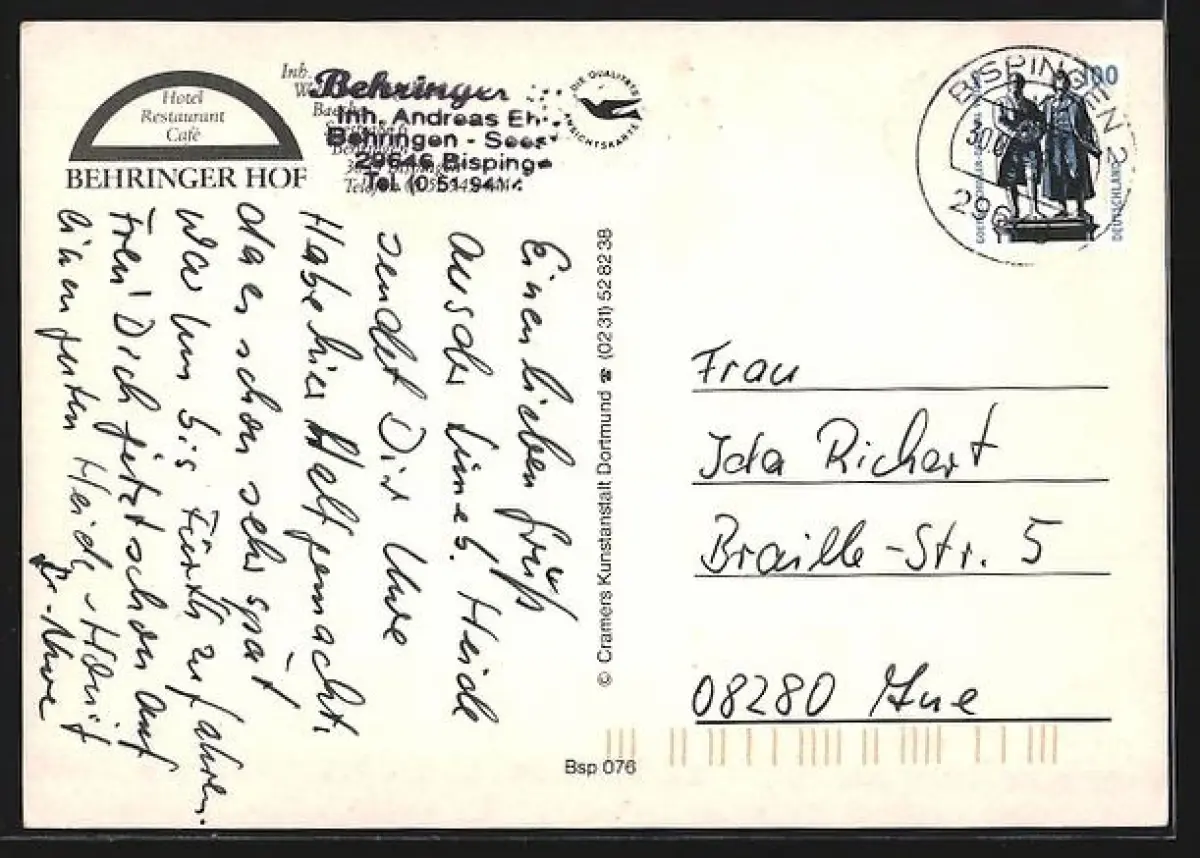 Hotel
Restaurant
Café
BEHRINGER HOF
Inh.
Behringer
Inh. Andreas Eh
Behringen - Seest
29646 Bispinge
Tel. (0 51 94) 4
DIE QUALITÄTS
ANSICHTSKARTE
Einen lieben Gruß
aus der Lüneb. Heide
sendet Dir Uwe
Habe hier Halt gemacht,
da es schon sehr spät
war um bis Fürth zu fahren.
Freu' Dich jetzt schon auf
einen guten Heide-Honig
Dr. Uwe
© Cramers Kunstanstalt Dortmund ☎ (02 31) 52 82 38
Bsp 076
BISPINGEN 2
30.0
296
100
GOETHE-SCHILLER-DENKMAL
DEUTSCHLAND
Frau
Ida Richert
Braille-Str. 5
08280 Aue